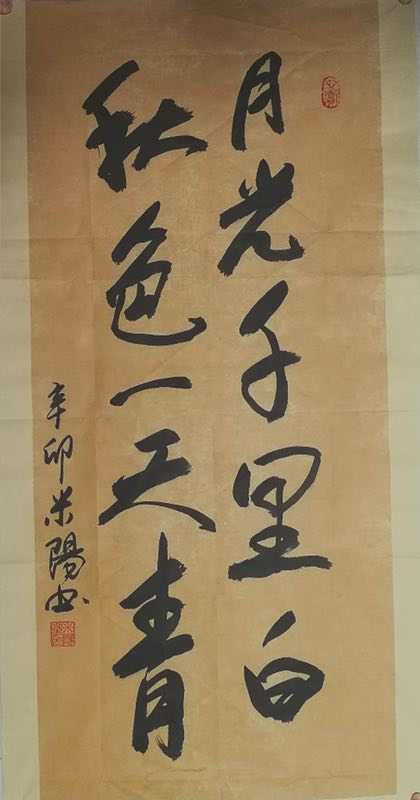 月光千里白
秋色一天青
辛卯米陽书